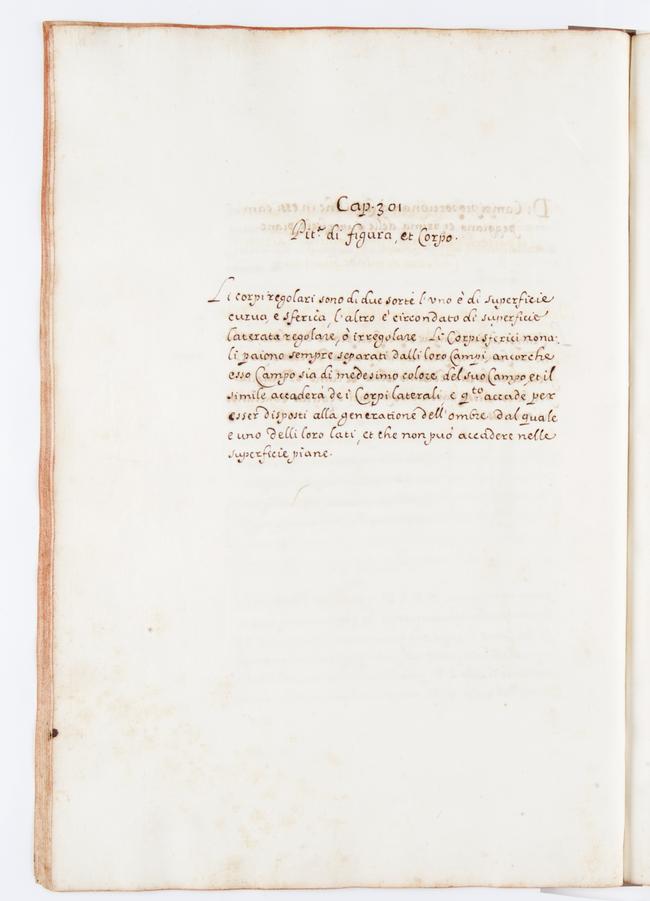 Cap. 301
Pit.ª di figura, et Corpo.
Li corpi regolari sono di due sorte l'uno è di superficie
curua, e sferica, l'altro è circondato di superficie
laterata regolare, ò irregolare Li Corpi sferici nona-
li paiono sempre separati dalli loro Campi, ancorche
esso Campo sia di medesimo colore del suo Campo, et il
simile accaderà de i Corpi laterali, e q.to accade per
esser disposti alla generatione dell'ombre dal quale
e uno delli loro lati, et che non può accadere nelle
superficie piane.